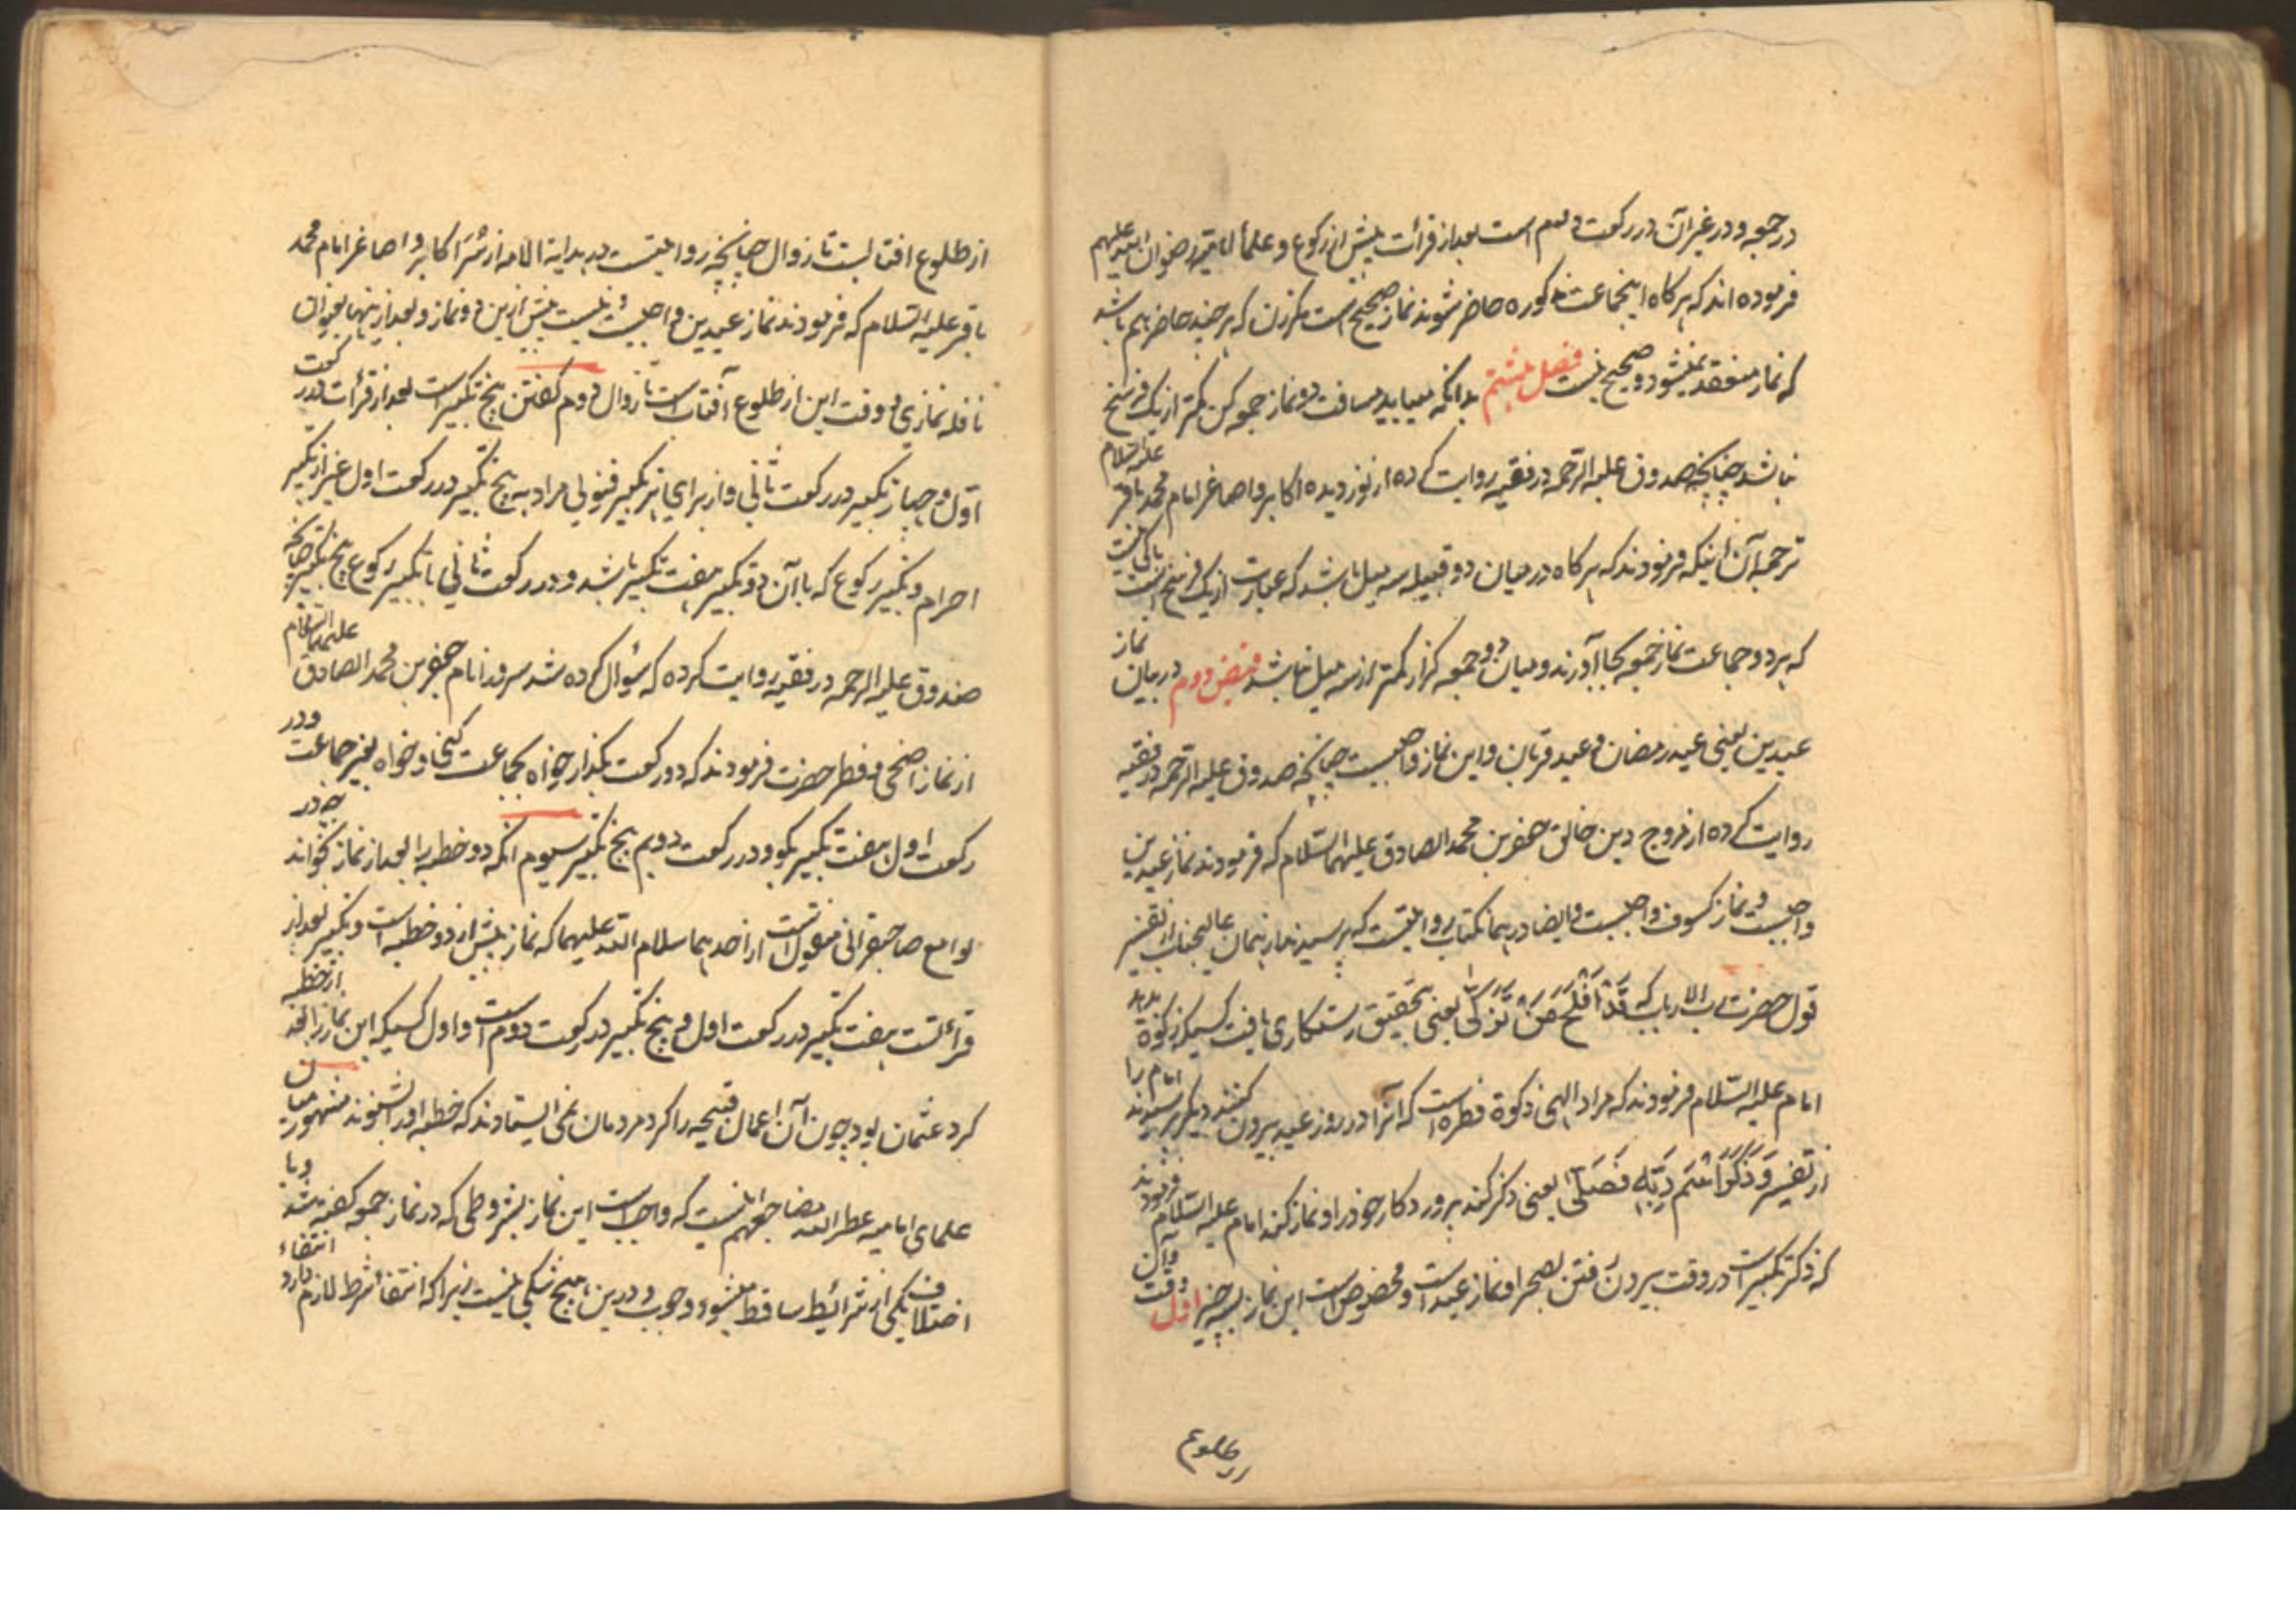 در جمعه و در غیر آن در رکعت دویم است بعد از قرائت پیش از رکوع و علمأ امامیه رضوان الله علیهم
فرموده اند که هرکاه اینجماعت مذکوره حاضر شوند نماز صحیح است مکر زن که هر چند حاضر هم باشد
که نماز منعقد نمیشود و صحیح نیست فصل هشتم بدانکه میباید مسافت دو نماز جمعه کن کمتر از یک فرسخ
نباشد چنانچه صدوق علیه الرحمه در فقیه روایت کرده از نور دیده اکابر و اصاغر امام محمد باقر علیه السلام
ترجمه آن اینکه فرمودند که هرکاه در میان دو قبیله سه میل باشد که عبارت از یک فرسخ است باکی نیست
که هر دو جماعت نماز جمعه بجا آورند و میان دو جمعه کزار کمتر از سه میل نباشد فیض دوم در بیان نماز
عیدین یعنی عید رمضان و عید قربان و این نماز واجبست چنانچه صدوق علیه الرحمه در فقیه
روایت کرده از فروج دین خالق جعفر بن محمد الصادق علیهما السلام که فرمودند نماز عیدین
واجبست و نماز کسوف واجبست و ایضا در همان کتاب روایتست که پرسیدند از همان عالیجناب از تفسیر
قول حضرت رب الارباب که قَدْ اَفْلَحَ مَنْ تَزَکّٰی یعنی بتحقیق رستکاری یافت کسیکه زکوة بدهد
امام علیه السلام فرمودند که مراد الهی زکوة فطره است که آنرا در روز عید بیرون کنند دیکر پرسیدند امام را
از تفسیر وَ ذَکَرَ اسْمَ رَبِّهِ فَصَلّٰی یعنی ذکر کند پروردکار خود را و نماز کند امام علیه السلام فرمودند
که ذکر تکبیر است در وقت بیرون رفتن بصحرا و نماز عید است و مخصوص است این نماز بسه چیز اول وقت و آن
از طلوع
از طلوع افتابست تا زوال چنانچه روایتست در بدایة الامه از اکابر و اصاغر امام محمد
باقر علیه السلام که فرمودند نماز عیدین واجبست و نیست پیش ازین دو نماز و بعد از ینها بعنوان
نافله نمازی و وقت این از طلوع آفتاب است تا زوال دوم کفتن پنج تکبیر است بعد از قرأت در رکعت
اول و چهار تکبیر در رکعت ثانی و از برای هر تکبیر قنوتی مراد به پنج تکبیر در رکعت اول غیر از تکبیر
احرام و تکبیر رکوع که با آن دو تکبیر هفت تکبیر باشد و در رکعت ثانی با تکبیر رکوع پنج تکبیر چنانچه
صدوق علیه الرحمه در فقیه روایت کرده که سؤال کرده شد سرور انام جعفر بن محمد الصادق علیهما السلام
از نماز اضحی و فطر حضرت فرمودند که دو رکعت بکذار خواه بجماعت کنی و خواه بغیر جماعت و در
رکعت اول هفت تکبیر بکو و در رکعت دویم پنج تکبیر سیوم انکه دو خطبه را بعد از نماز بخواند چه در
لوامع صاحبقرانی منقول است از احدهما سلام الله علیهما که نماز پیش از دو خطبه است و تکبیر بعد از
قرأتست هفت تکبیر در رکعت اول و پنج تکبیر در رکعت دوم است و اول کسیکه این نماز را بعد از خطبه
کرد عثمان بود چون آن اعمال قبیحه را کرد مردمان نمی ایستادند که خطبه او را بشنوند مشهور میان
علمای امامیه عطر الله مضاجعهم اینست که واجب است این نماز بشروطی که در نماز جمعه کفته شد و با
اختلاف یکی از شرائط ساقط میشود وجوب و درین هیچ شکی نیست زیرا که انتفأ شرط لازم دارد انتفاء